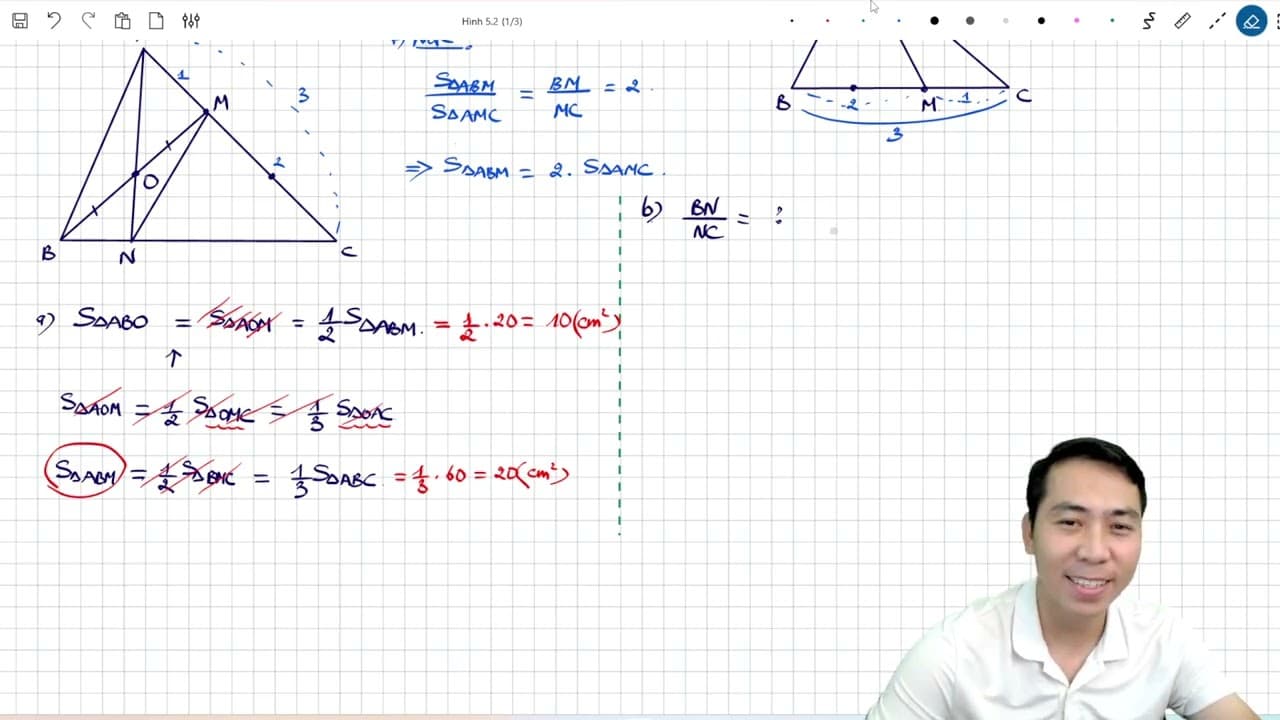 Hình 5.2 (1/3)
1
M
3
2
O
B
N
C
S△ABM / S△AMC = BM / MC = 2.
⇒ S△ABM = 2. S△AMC.
B
2
M
1
C
3
a) S△ABO = S△AOM = 1/2 S△ABM. = 1/2 . 20 = 10(cm²)
↑
S△AOM = 1/2 S△OMC = 1/3 S△OAC
S△ABM = 1/2 S△BMC = 1/3 S△ABC = 1/3 . 60 = 20(cm²)
b) BN / NC = ?